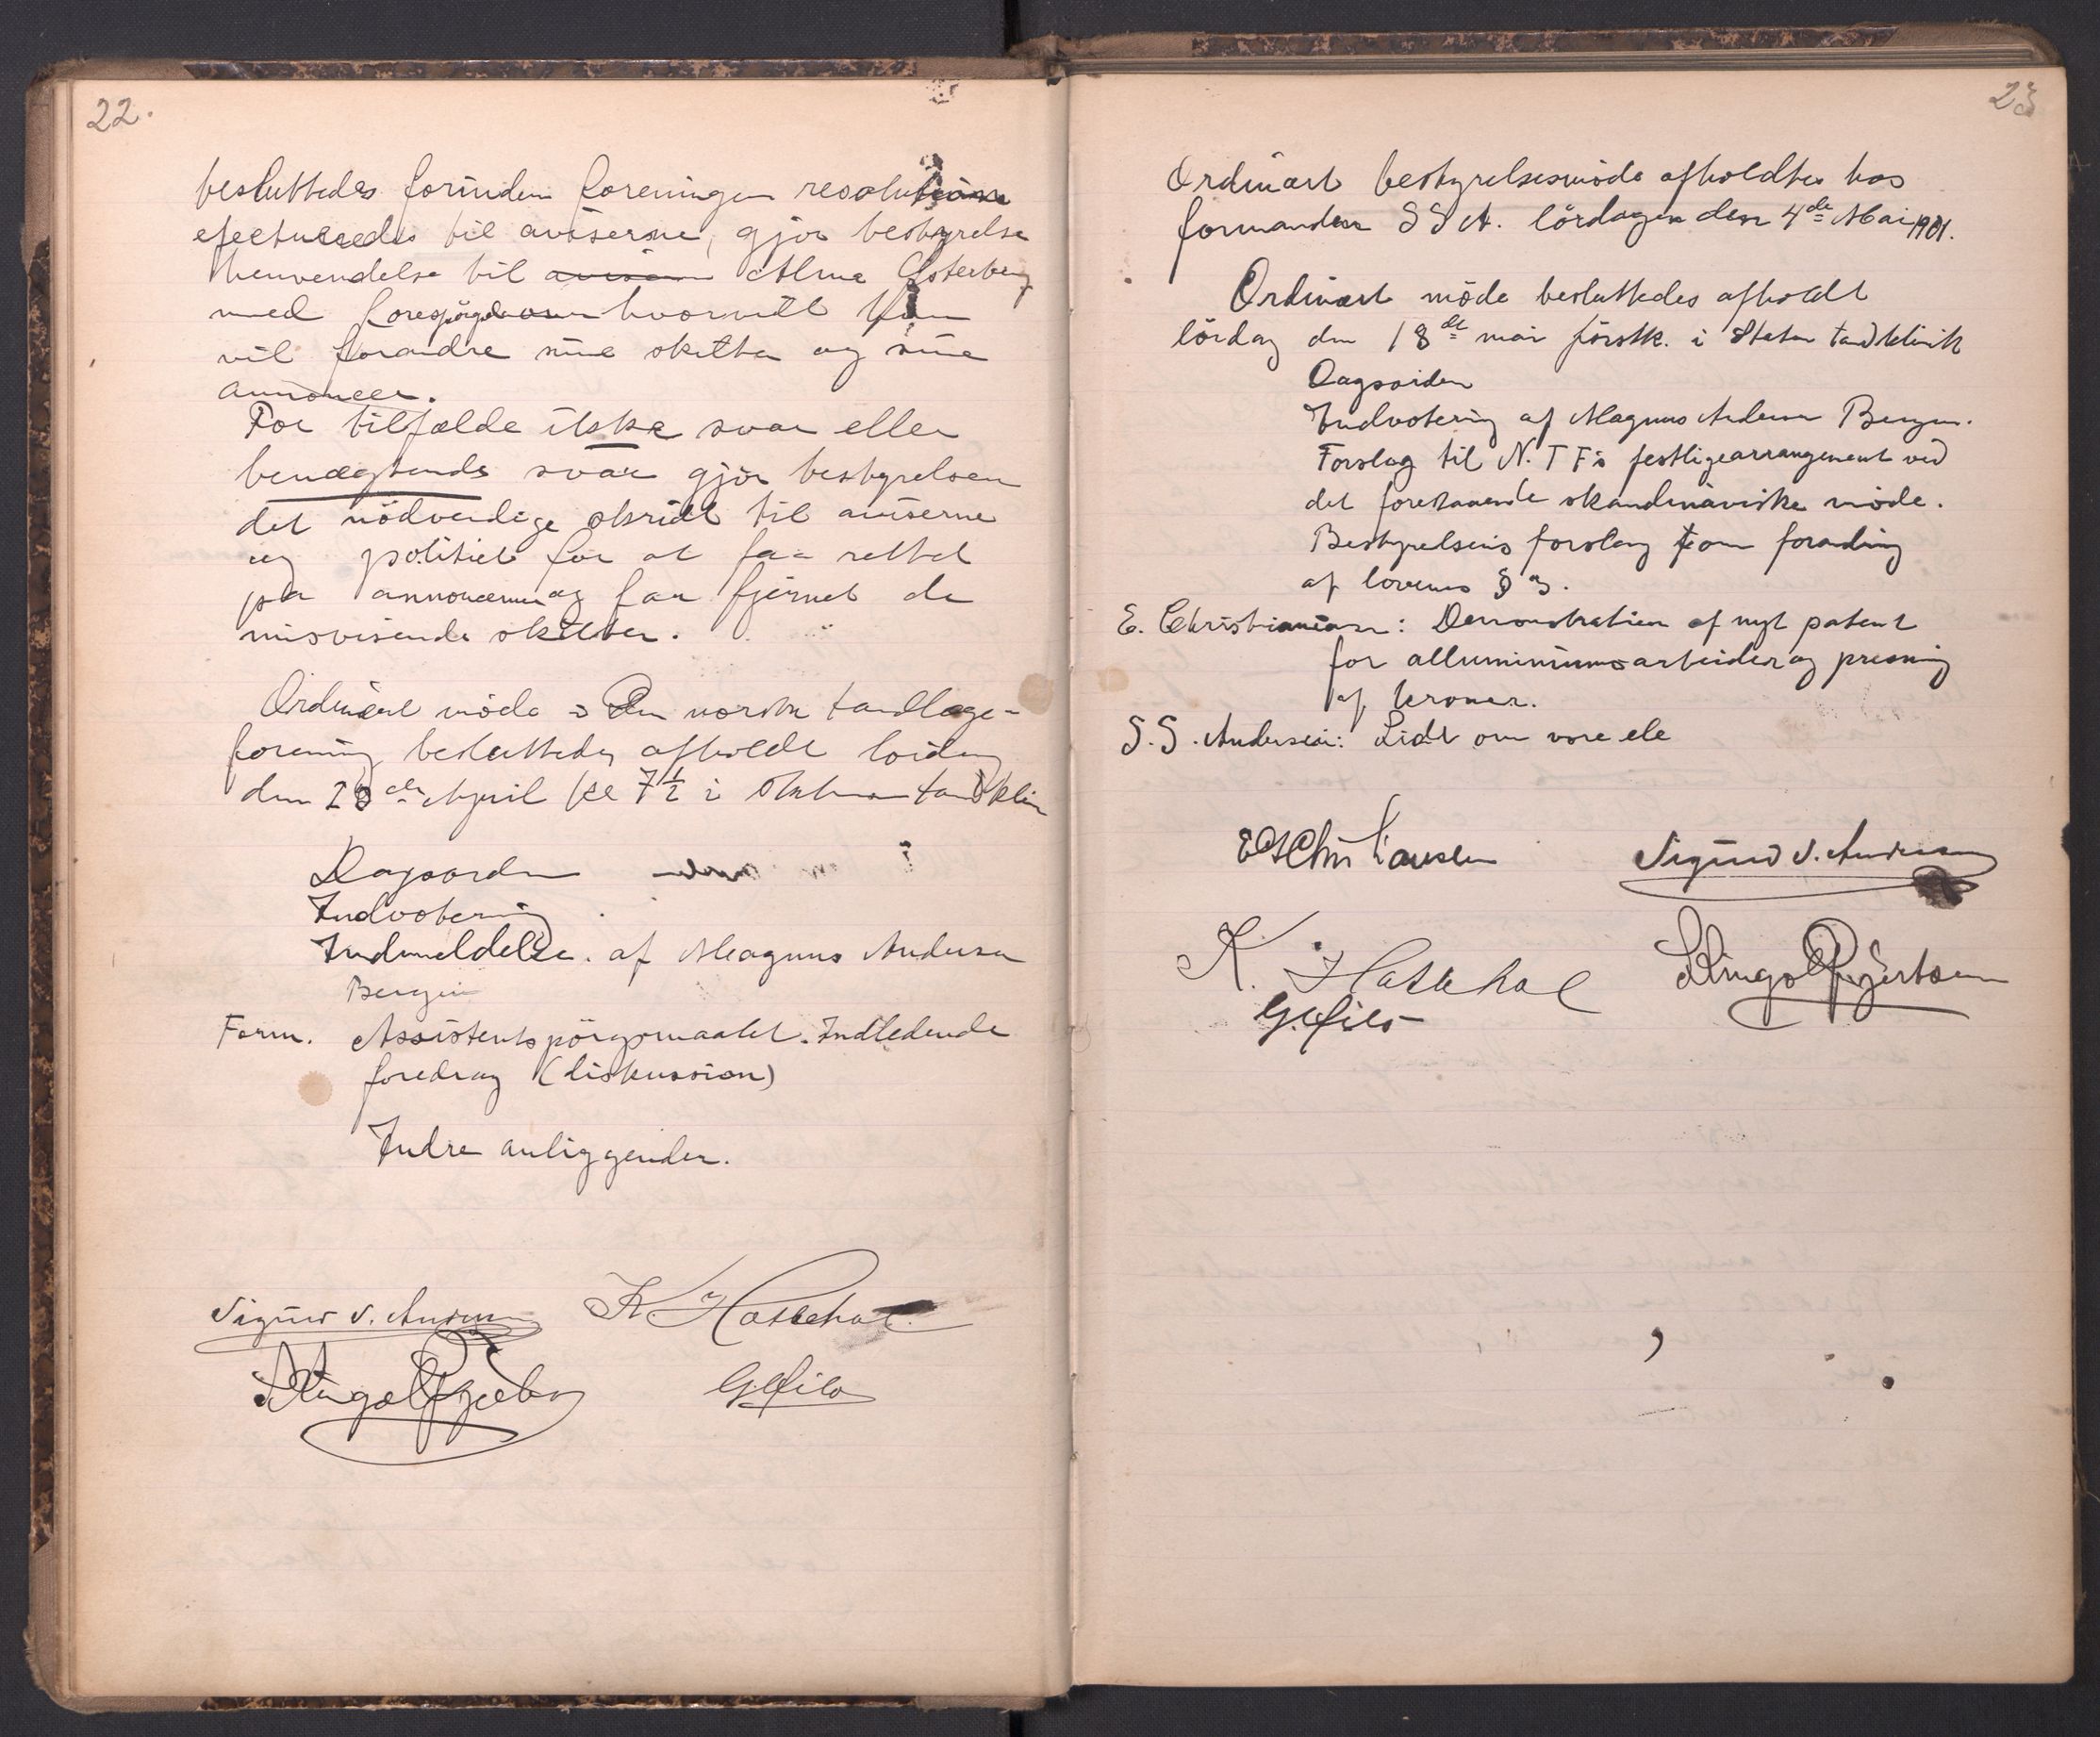 22.
besluttedes forinden foreningen resolutions
efectueredes til aviserne, gjør bestyrelse
henvendelse til avisen Alma Østerberg
med forespørgelse hvorvidt hun
vil forandre sine skilter og sine
annoncer.
For tilfælde ikke svar eller
benægtende svar gjør bestyrelsen
det nødvendige skridt til aviserne
og politiet for at faa rettet
pa annoncerne og faa fjernet de
misvisende skilter.
Ordinært møde i Den norske tandlæge=
forening besluttedes afholdt lørdag
den 20de April kl 7½ i Statens tandklin
Dagsorden
Indvotering
Indmeldelse. af Magnus Andersen
Bergen
Form. Assistentspörgsmaalet. Indledende
foredrag (diskussion)
Indre anliggender.
Sigurd S. Andersen K. Hatlehol
23
Ordinært bestyrelsesmöde afholdtes hos
formanden SSA. lördagen den 4de Mai 1901.
Ordinært möde besluttedes afholdt
lördag den 18de mai förstk. i Staten tandklinik
Dagsorden
Indvotering af Magnus Andersen Bergen.
Forslag til N.T F's festligearrangement ved
det forestaaende skandinaviske möde.
Bestyrelsens forslag om forandring
af lovenes § 3.
E. Christiansen: Demonstration af nyt patent
for alluminiumsarbeider og presning
af kroner.
S.S. Andersen: Lidt om vore ele
Sigurd S. Andersen
K. Hatlehol